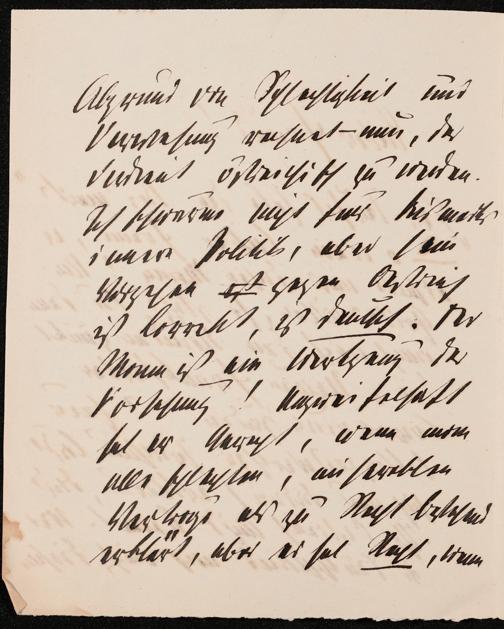 Abgrund von Schlechtigkeit und
Verwesung rechnet – nun, der
verdient östreichisch zu werden.
Ich schwärme nicht für Bismarcks
innere Politik, aber sein
Vorgehen ist gegen Oestreich
ist korrekt, ist deutsch. Der
Mann ist ein Werkzeug der
Vorsehung! Unzweifelhaft
hat er Unrecht, wenn man
alle schlechten, miserablen
Verträge als zu Recht bestehend
erklärt, aber er hat Recht, wenn